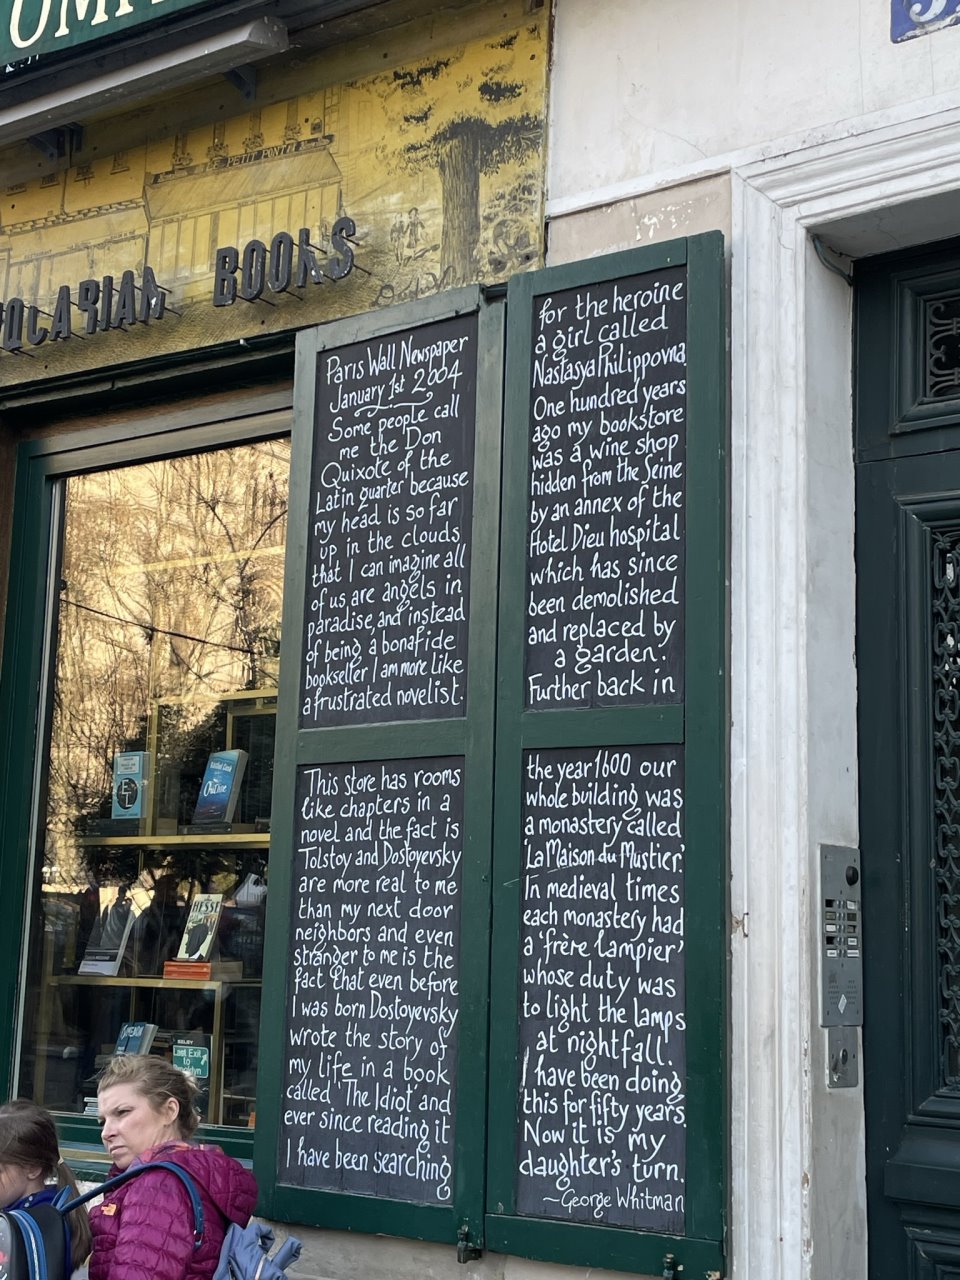 PETIT PONT
BOOKS
Paris Wall Newspaper
January 1st 2004
Some people call
me the Don
Quixote of the
Latin quarter because
my head is so far
up in the clouds
that I can imagine all
of us are angels in
paradise, and instead
of being a bonafide
bookseller I am more like
a frustrated novelist.
This store has rooms
like chapters in a
novel and the fact is
Tolstoy and Dostoyevsky
are more real to me
than my next door
neighbors and even
stranger to me is the
fact that even before
I was born Dostoyevsky
wrote the story of
my life in a book
called 'The Idiot' and
ever since reading it
I have been searching
for the heroine
a girl called
Nastasya Philippovna
One hundred years
ago my bookstore
was a wine shop
hidden from the Seine
by an annex of the
Hotel Dieu hospital
which has since
been demolished
and replaced by
a garden.
Further back in
the year 1600 our
whole building was
a monastery called
'La Maison du Mustier'.
In medieval times
each monastery had
a 'frère lampier'
whose duty was
to light the lamps
at nightfall.
I have been doing
this for fifty years.
Now it is my
daughter's turn.
~George Whitman
HESSE
Last Exit
to
Brooklyn